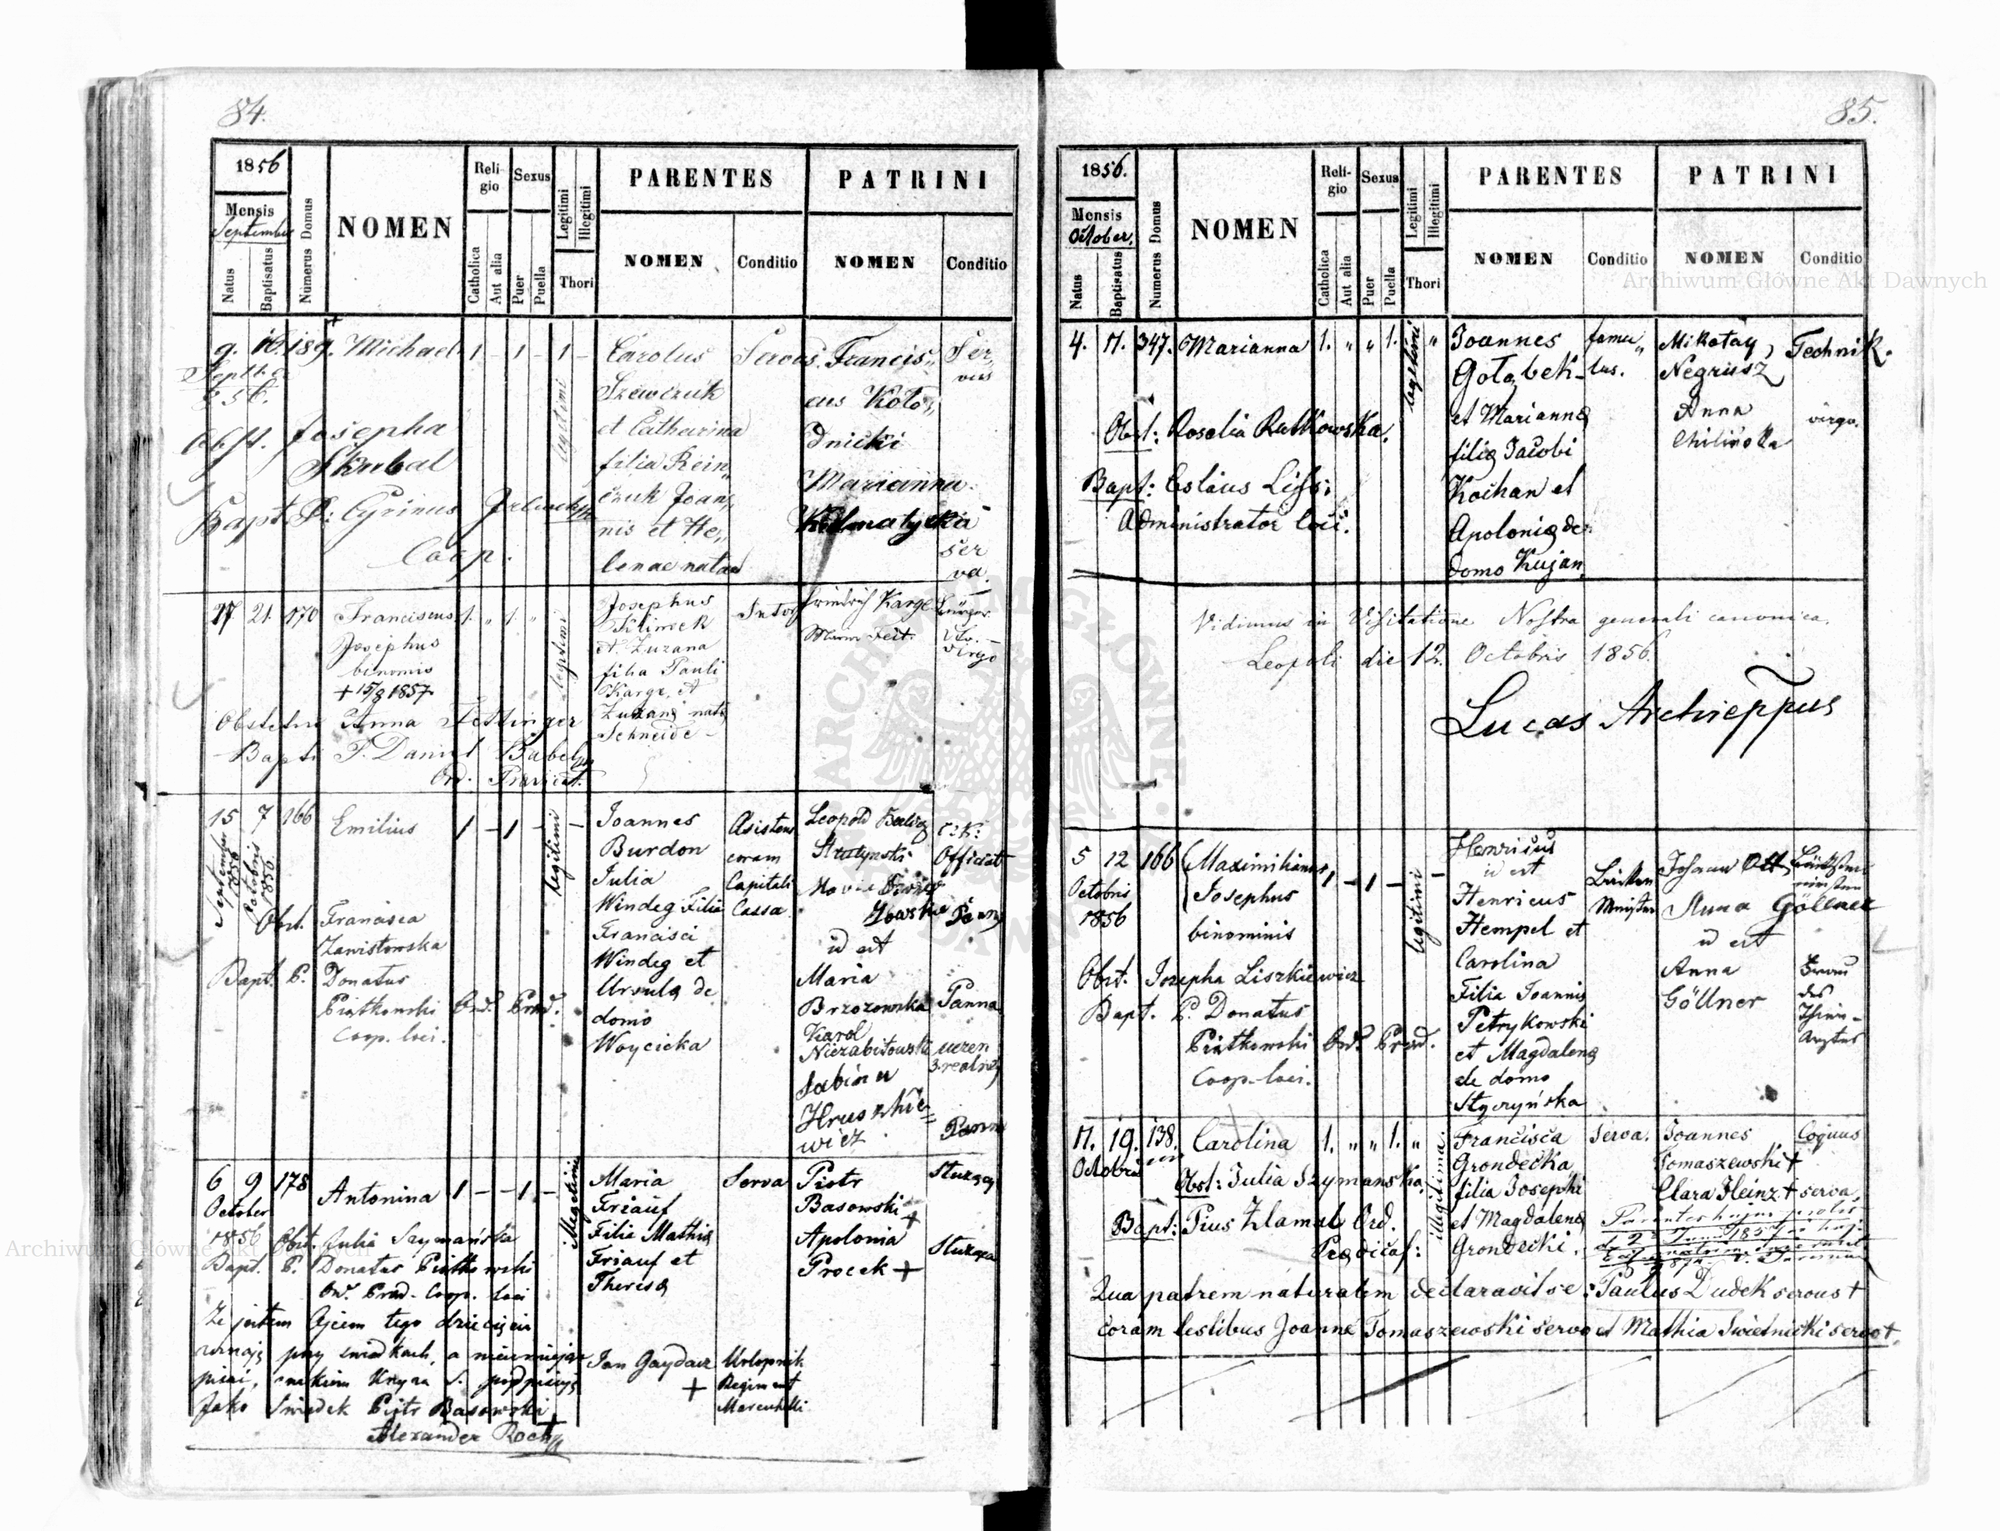 84.
1856
Mensis
September
Natus
Baptisatus
Numerus Domus
NOMEN
Reli-
gio
Catholica
Aut alia
Sexus
Puer
Puella
Legitimi
Illegitimi
Thori
PARENTES
NOMEN
Conditio
PATRINI
NOMEN
Conditio
9. 16. 189. Michael 1 - 1 - 1 -
Septb
856.
Obst. Josepha
Skubal
Bapt. P. Cyrinus
Coop.
legitimi
Carolus
Szewczuk
et Catharina
filia Rein„
czuk Joan„
nis et He„
lenae natae
Servus.
Francis„
cus Koło„
dnicki
Marianna
Ser
vus
ser
va.
17 21. 170 Franciscus 1. „ 1. „
Josephus
binomis
+ 15/8 1857
Obstetrix Anna Fettinger
Bapti P. Daniel Babel
Ord. Praedicat.
legitimi
Josephus
Klimek
et Zuzana
filia Pauli
Karge, et
Zuzana nata
Schneide
Sutor
Friedrich Karge
Bürger
Virgo
15 7 166 Emilius 1 - 1 - -
September 1856
Octobris 1856
Obst. Francisca
Zawistowska
Bapt. P. Donatus
Piątkowski Ord. Præd.
Coop. loci.
legitimi
Joannes
Burdon
Julia
Windeg Filia
Francisci
Windeg et
Ursula de
domo
Woycicka
Asistens
coram
Capitali
Cassa
Leopold
id est
Maria
Brzozowska
Karol
Niezabitowski
Sabina
Hruszkie-
wicz
Official
Panna
uczen
3. realnej
Panna
6 9 178 Antonina 1 - - 1 -
October
1856 Obst. Julia Szymańska
Bapt. P. Donatus Piątkowski
Ord. Præd. Coop. loci
Illegitimi
Maria
Friauf
Filia Mathia
Friauf et
Theresa
Serva
Piotr
Basowski +
Apolonia
Procek +
Służący
Służąca
Że jestem Ojcem tego dziecięcia
zeznaję przy świadkach, a nieumiejąc
pisać, znakiem Krzyża S. podpisuję
Jan Gaydacz
+
Urlopnik
Regiment
Jako Świadek Piotr Basowski +
Alexander Roch
85.
1856.
Mensis
October.
Natus
Baptisatus
Numerus Domus
NOMEN
Reli-
gio
Catholica
Aut alia
Sexus
Puer
Puella
Legitimi
Illegitimi
Thori
PARENTES
NOMEN
Conditio
PATRINI
NOMEN
Conditio
4. 11. 347. Marianna 1. „ „ 1. „
Obst: Rosalia Rutkowska.
Bapt: Eslaus Liss:
Administrator loci.
legitimi
Joannes
Gołąbek
et Marianna
filia Jacobi
Kochan et
Apolonia de
domo Kujan.
famu„
lus.
Mikołay
Negrusz
Anna
Chilińska
Technik.
virgo.
Vidimus in Visitatione Nostra generali canonica.
Leopoli die 12. Octobris 1856.
Lucas Archieppus
5 12 166 Maximilianus 1 - 1 - -
Octobris Josephus
1856 binominis
Obst. Josepha Liszkiewicz
Bapt. P. Donatus
Piątkowski Ord. Præd.
Coop. loci.
legitimi
Henricus
id est
Henricus
Hempel et
Carolina
Filia Joannis
Petrykowski
et Magdalena
de domo
Styczyńska
Johann Ott
Anna Göllner
id est
Anna
Göllner
Frau
des
11. 19. 138. Carolina 1. „ „ 1. „
Octobris
Obst: Julia Szymańska.
Bapt: Pius Zlamal Ord.
Prædicat:
illegitima
Francisca
Grondecka
filia Josephi
et Magdalena
Grondecki.
Serva.
Joannes
Tomaszewski +
Clara Heinz +
Coquus
serva.
Qua patrem naturalem declaravit se: Paulus Dudek servus +
coram testibus Joanne Tomaszewski servo et Mathia Swietnicki servo +.
Archiwum Główne Akt Dawnych
Archiwum Główne Akt Dawnych
ARCHIWUM GŁÓWNE AKT DAWNYCH